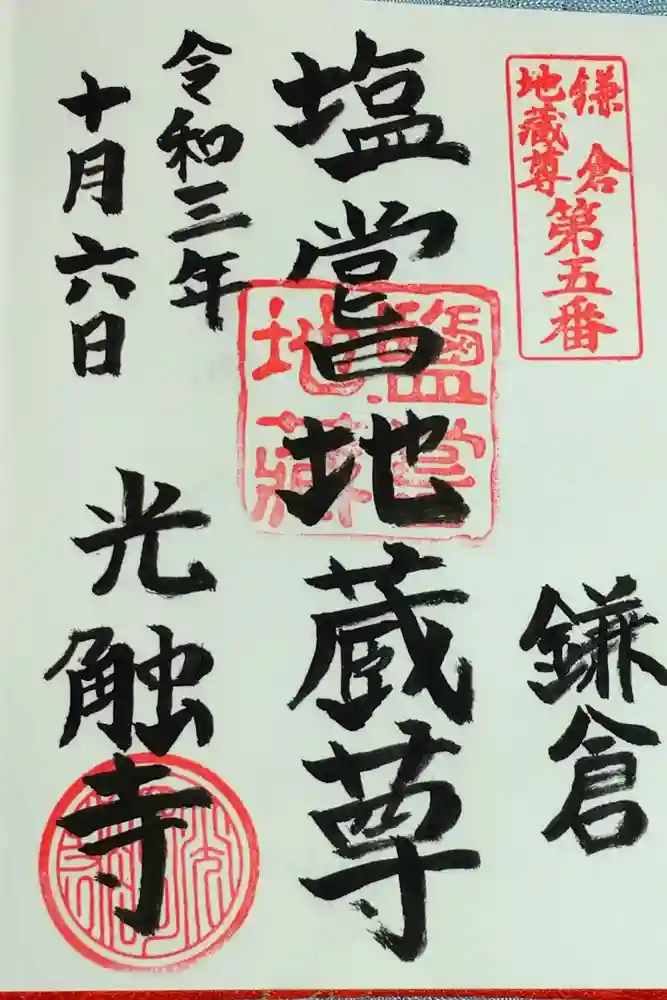 鎌倉
地蔵尊
第五番
鎌倉
塩嘗地蔵尊
塩嘗
地蔵
令和三年
十月六日
光触寺